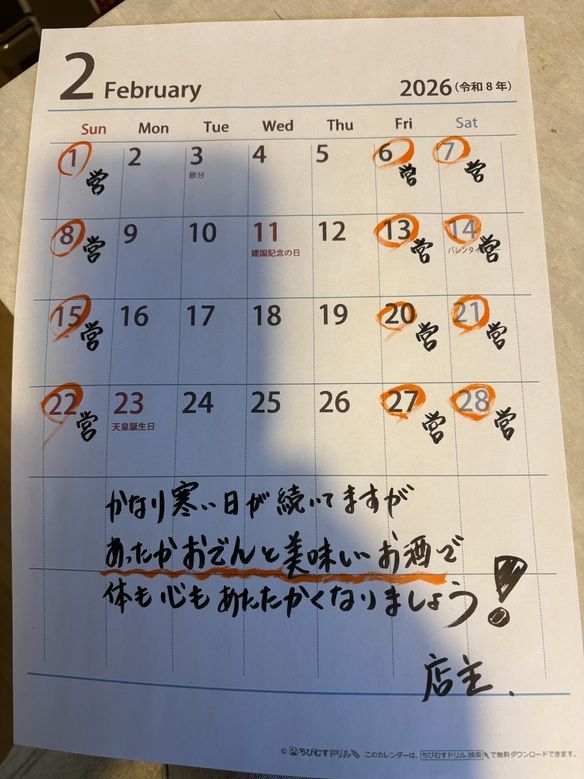 2 February 2026 (令和8年)
Sun Mon Tue Wed Thu Fri Sat
1 2 3 4 5 6 7
節分
営 営 営
8 9 10 11 12 13 14
建国記念の日 バレンタイン
営 営 営
15 16 17 18 19 20 21
営 営 営
22 23 24 25 26 27 28
天皇誕生日
営 営 営
かなり寒い日が続いてますが
あったかおでんと美味しいお酒で
体も心もあたたかくなりましょう!
店主.
© ちびむすドリル このカレンダーは、ちびむすドリル 検索 で無料ダウンロードできます。